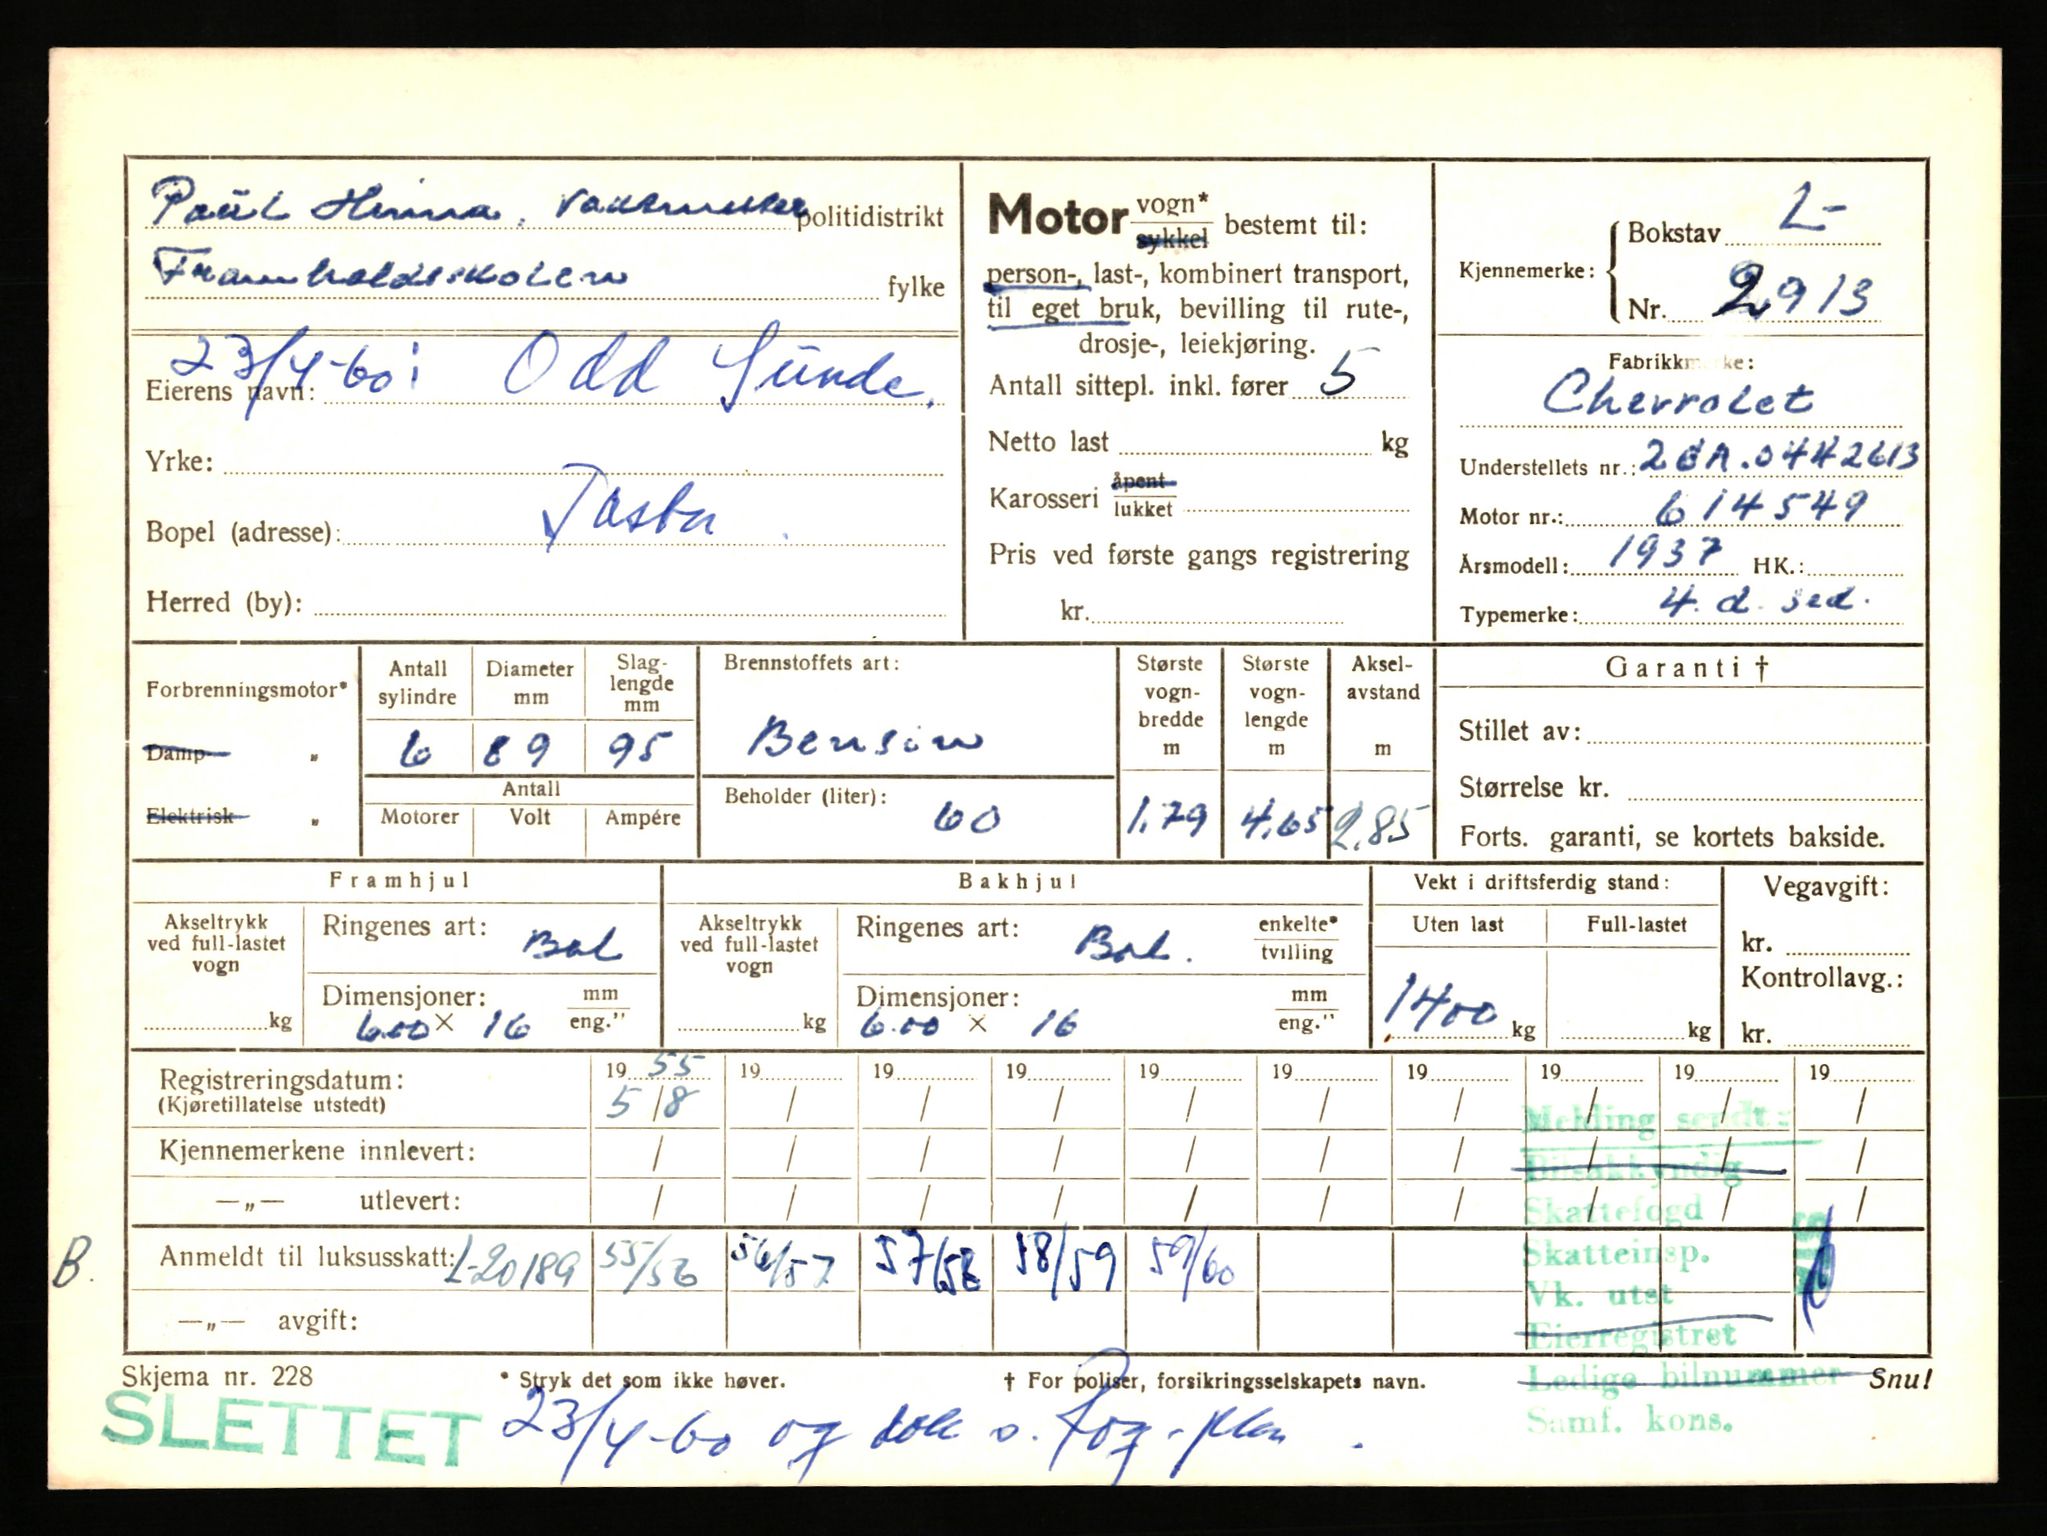 Paul Hinna, vaktmester politidistrikt
Framhaldsskolen fylke
23/4-60: Odd Sunde.
Eierens navn:
Yrke:
Bopel (adresse): Tasta
Herred (by):
Motor vogn*
sykkel bestemt til:
person-, last-, kombinert transport,
til eget bruk, bevilling til rute-,
drosje-, leiekjøring.
Antall sittepl. inkl. fører 5
Netto last kg
Karosseri åpent
lukket
Pris ved første gangs registrering
kr.
Kjennemerke: Bokstav L-
Nr. 2913
Fabrikkmerke:
Chevrolet
Understellets nr.: 2GA.0442613
Motor nr.: 614549
Årsmodell: 1937 HK.:
Typemerke: 4. d. sed.
Forbrenningsmotor*
Damp "
Elektrisk "
Antall sylindre
6
Diameter mm
89
Slag-lengde mm
95
Antall
Motorer Volt Ampére
Brennstoffets art:
Bensin
Beholder (liter): 60
Største vogn-bredde m
1.79
Største vogn-lengde m
4.65
Aksel-avstand m
2.85
Garanti †
Stillet av:
Størrelse kr.
Forts. garanti, se kortets bakside.
Framhjul
Akseltrykk
ved full-lastet
vogn
kg
Ringenes art: Bal
Dimensjoner: mm
6.00 × 16 eng."
Bakhjul
Akseltrykk
ved full-lastet
vogn
kg
Ringenes art: Bal. enkelte*
tvilling
Dimensjoner: mm
6.00 × 16 eng."
Vekt i driftsferdig stand:
Uten last Full-lastet
1400 kg kg
Vegavgift:
kr.
Kontrollavg.:
kr.
Registreringsdatum: 19 55 19 19 19 19 19 19 19 19 19
(Kjøretillatelse utstedt) 5/8 / / / / / / / / /
Kjennemerkene innlevert: / / / / / / / / / /
—„— utlevert: / / / / / / / / / /
B. Anmeldt til luksusskatt: L-20189 55/56 56/57 57/58 58/59 59/60
—„— avgift:
Melding sendt:
Bilsakkyndig
Skattefogd
Skatteinsp.
Vk. utst
Eierregistret
Ledige bilnummer
Samf. kons.
Skjema nr. 228 * Stryk det som ikke høver. † For poliser, forsikringsselskapets navn. Snu!
SLETTET 23/4-60 og